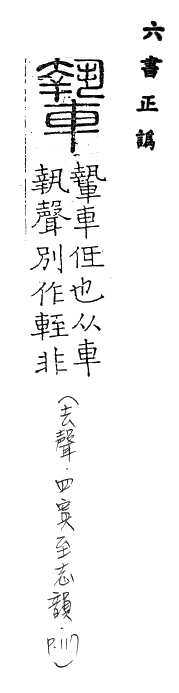 六書正譌
𨎌
𨎌車仾也从車
執聲別作輊非
（去聲．四寘至志韻．P.117）